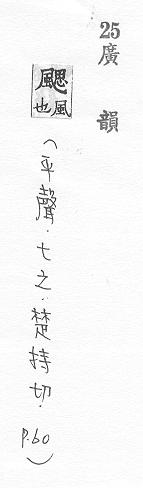 25廣韻
颸風也
（平聲．七之．楚持切．P.60）